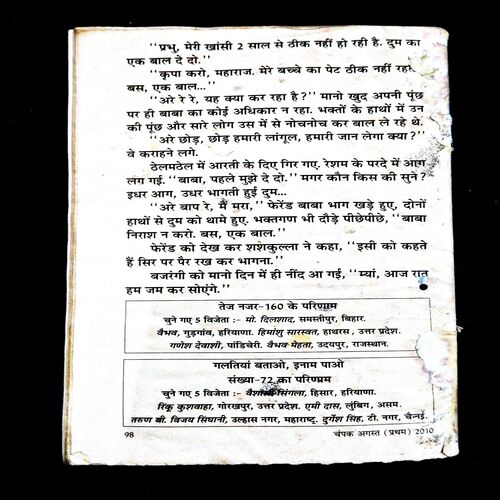 "प्रभु, मेरी खांसी 2 साल से ठीक नहीं हो रही है. दुम का
एक बाल दे दो."
"कृपा करो, महाराज. मेरे बच्चे का पेट ठीक नहीं
बस, एक बाल..."
"अरे रे रे, यह क्या कर रहा है?" मानो खुद अपनी पूंछ
पर ही बाबा का कोई अधिकार न रहा. भक्तों के हाथों में उन
की पूंछ और सारे लोग उस में से नोचनोच कर बाल ले रहे थे.
"अरे छोड़, छोड़ हमारी लांगूल, हमारी जान लेगा क्या?"
वे कराहने लगे.
ठेलमठेल में आरती के दिए गिर गए. रेशम के परदे में आग
लग गई. "बाबा, पहले मुझे दे दो." मगर कौन किस की सुने?
इधर आग, उधर भागती हुई दुम...
"अरे बाप रे, मैं मुरा," फेरेंड बाबा भाग खड़े हुए, दोनों
हाथों से दुम को थामे हुए. भक्तगण भी दौड़े पीछेपीछे, "बाबा
निराश न करो. बस, एक बाल."
फेरेंड को देख कर शशकुल्ला ने कहा, "इसी को कहते
हैं सिर पर पैर रख कर भागना."
बजरंगी को मानो दिन में ही नींद आ गई, "म्यां, आज रात
हम जम कर सोएंगे."
तेज नजर-160 के परिणाम
चुने गए 5 विजेता :- मो. दिलशाद, समस्तीपुर, बिहार.
वैभव, गुड़गांव, हरियाणा. हिमांशु सारस्वत, हाथरस, उत्तर प्रदेश.
गणेश देवाशी, पांडिचेरी. वैभव मेहता, उदयपुर, राजस्थान.
गलतियां बताओ, इनाम पाओ
संख्या-72 का परिणाम
चुने गए 5 विजेता :- वैशाली सिंगला, हिसार, हरियाणा.
रिंकू कुशवाहा, गोरखपुर, उत्तर प्रदेश. एमी दास, लुंबिग, असम.
तरुण बी. विजय सिंघानी, उल्हास नगर, महाराष्ट्र. दुर्गेश सिंह, टी. नगर, चैन्नई.
98 चंपक अगस्त (प्रथम) 2010